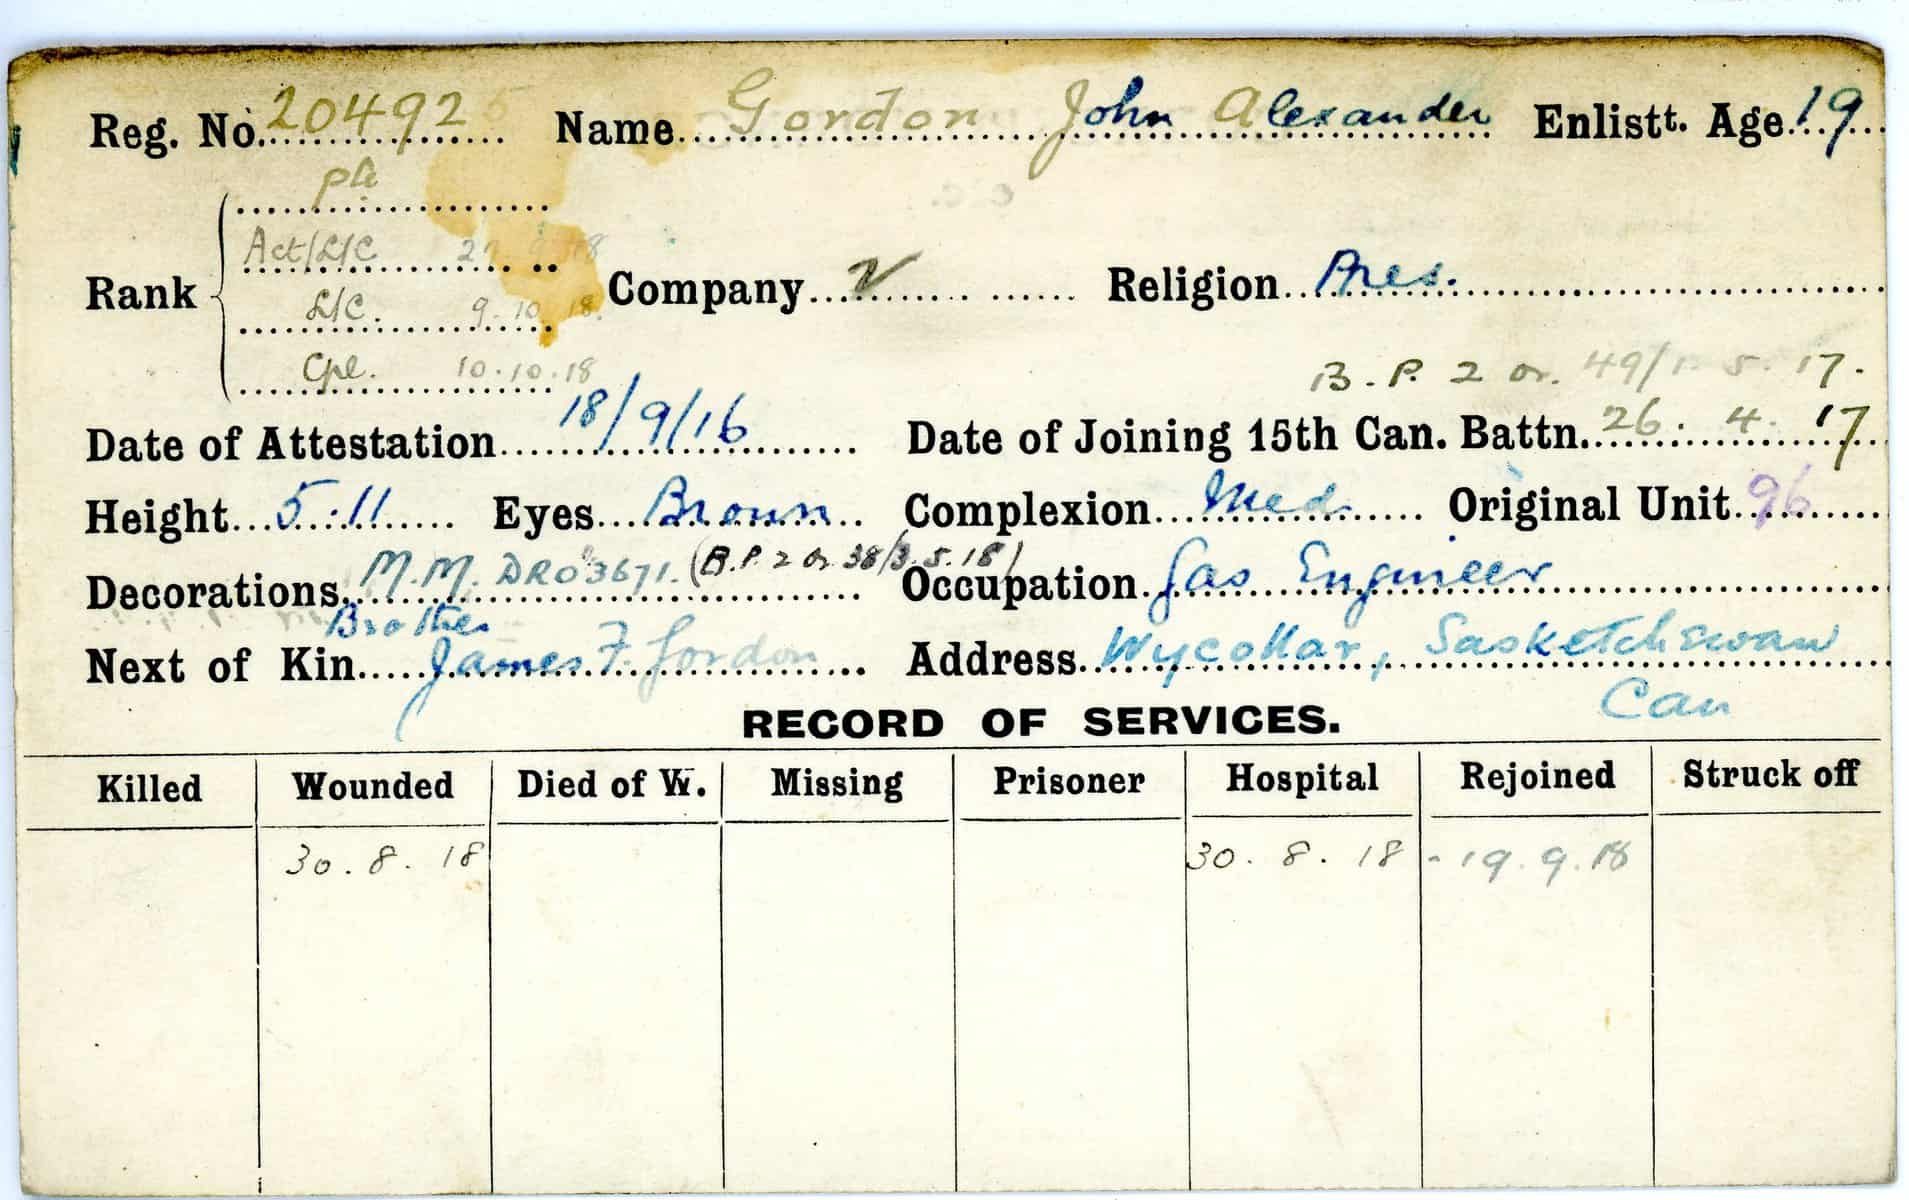 Reg. No. 204925 Name Gordon John Alexander Enlistt. Age 19
Pte
Act/L/C 27. 9. 18
Rank L/C. 9. 10. 18. Company Religion Pres.
Cpl. 10.10.18
B. P. 2 or. 49/1. 5. 17.
Date of Attestation 18/9/16 Date of Joining 15th Can. Battn. 26. 4. 17
Height 5.11 Eyes Brown Complexion Med. Original Unit 96
Decorations M.M. DRO 3671. (B.P. 2 or 38/3.5.18) Occupation Gas Engineer
Brother
Next of Kin James F. Gordon Address Wycollar, Sasketchewan
Can
RECORD OF SERVICES.
Killed Wounded Died of W. Missing Prisoner Hospital Rejoined Struck off
30. 8. 18 30. 8. 18 - 19. 9. 18